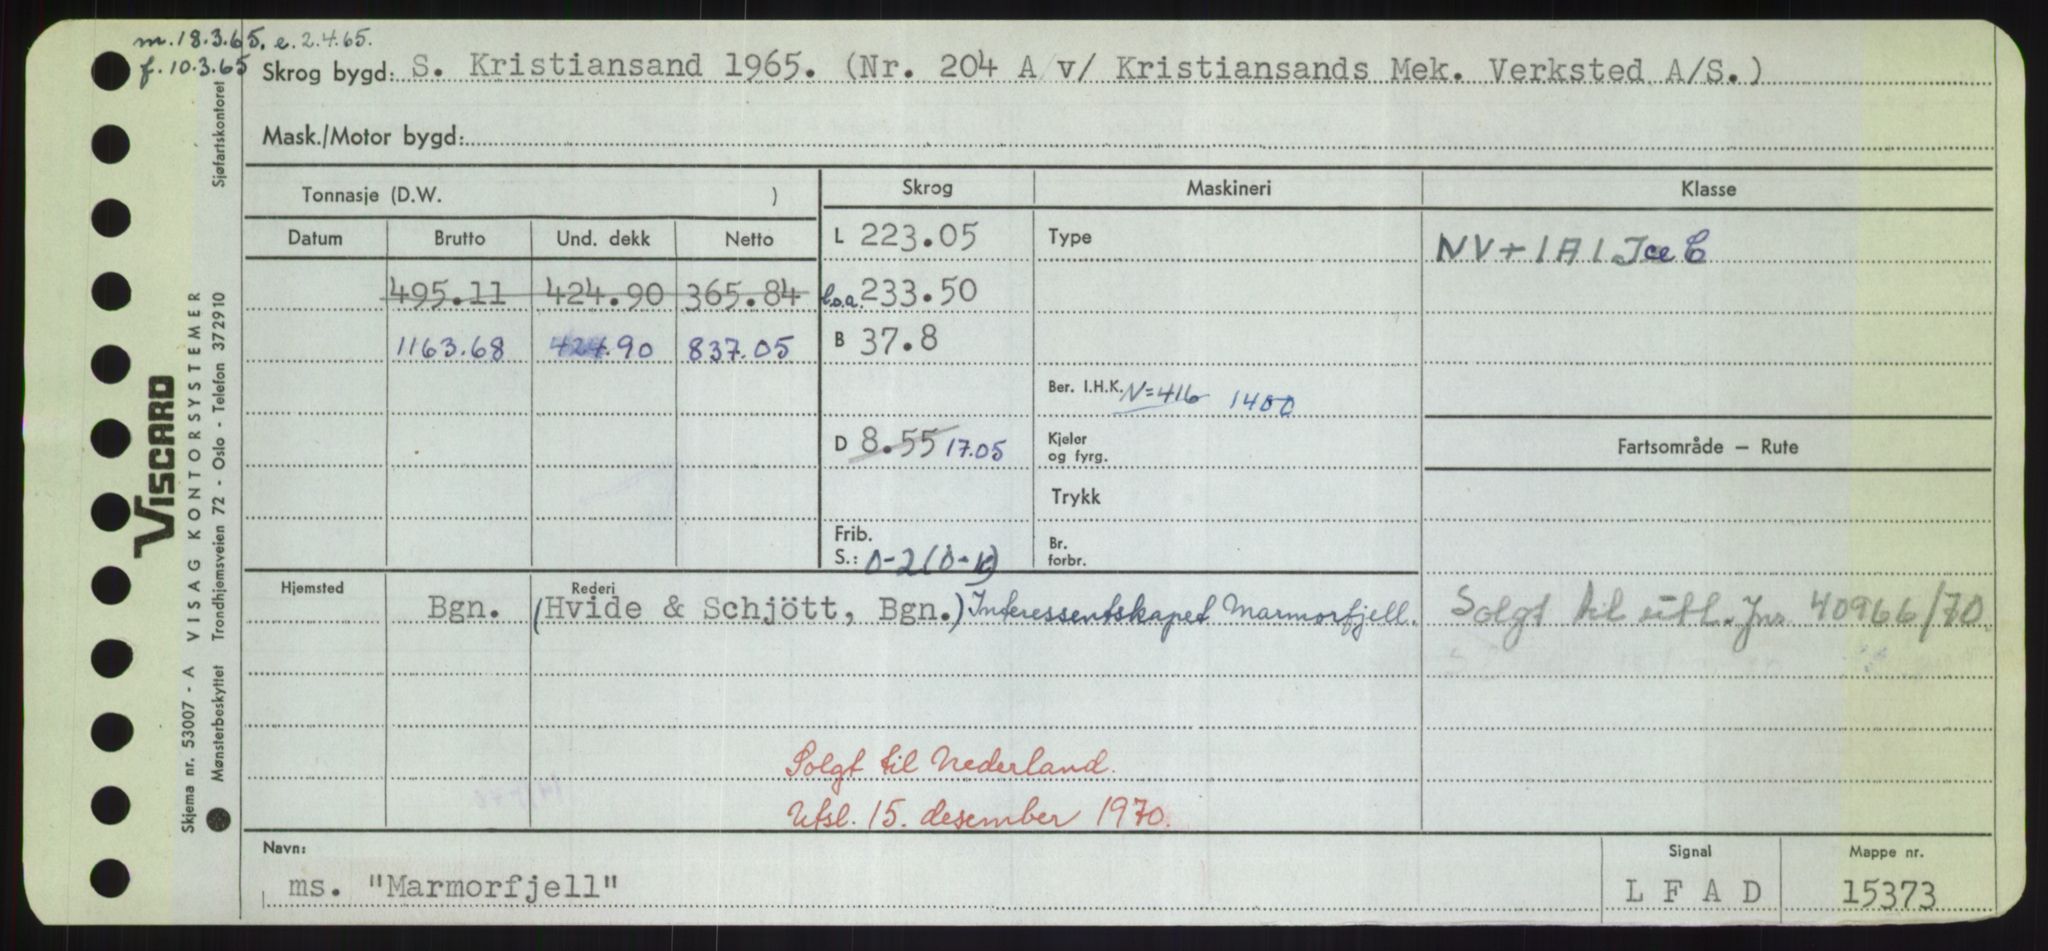 m. 18.3.65. e. 2.4.65.
f. 10.3.65
Skrog bygd: S. Kristiansand 1965. (Nr. 204 A v/ Kristiansands Mek. Verksted A/S.)
Mask./Motor bygd:
Tonnasje (D.W. )
Skrog
Maskineri
Klasse
Datum Brutto Und. dekk Netto
L 223.05
Type
NV + 1A1 Ice C
495.11 424.90 365.84
l.o.a. 233.50
1163.68 424.90 837.05
B 37.8
Ber. I.H.K. N=416 1400
D 8.55 17.05
Kjeler
og fyrg.
Fartsområde — Rute
Trykk
Frib.
S.: 0-2 (0-k)
Br.
forbr.
Hjemsted
Rederi
Bgn. (Hvide & Schjött, Bgn.) Interessentskapet Marmorfjell.
Solgt til utl. Jnr. 40966/70.
Solgt til Nederland.
Utsl. 15. desember 1970.
Navn:
ms. "Marmorfjell"
Signal
L F A D
Mappe nr.
15373
VISCARD
Skjema nr. 53007 - A VISAG KONTORSYSTEMER
Mønsterbeskyttet Trondhjemsveien 72 - Oslo - Telefon 372910 Sjøfartskontoret